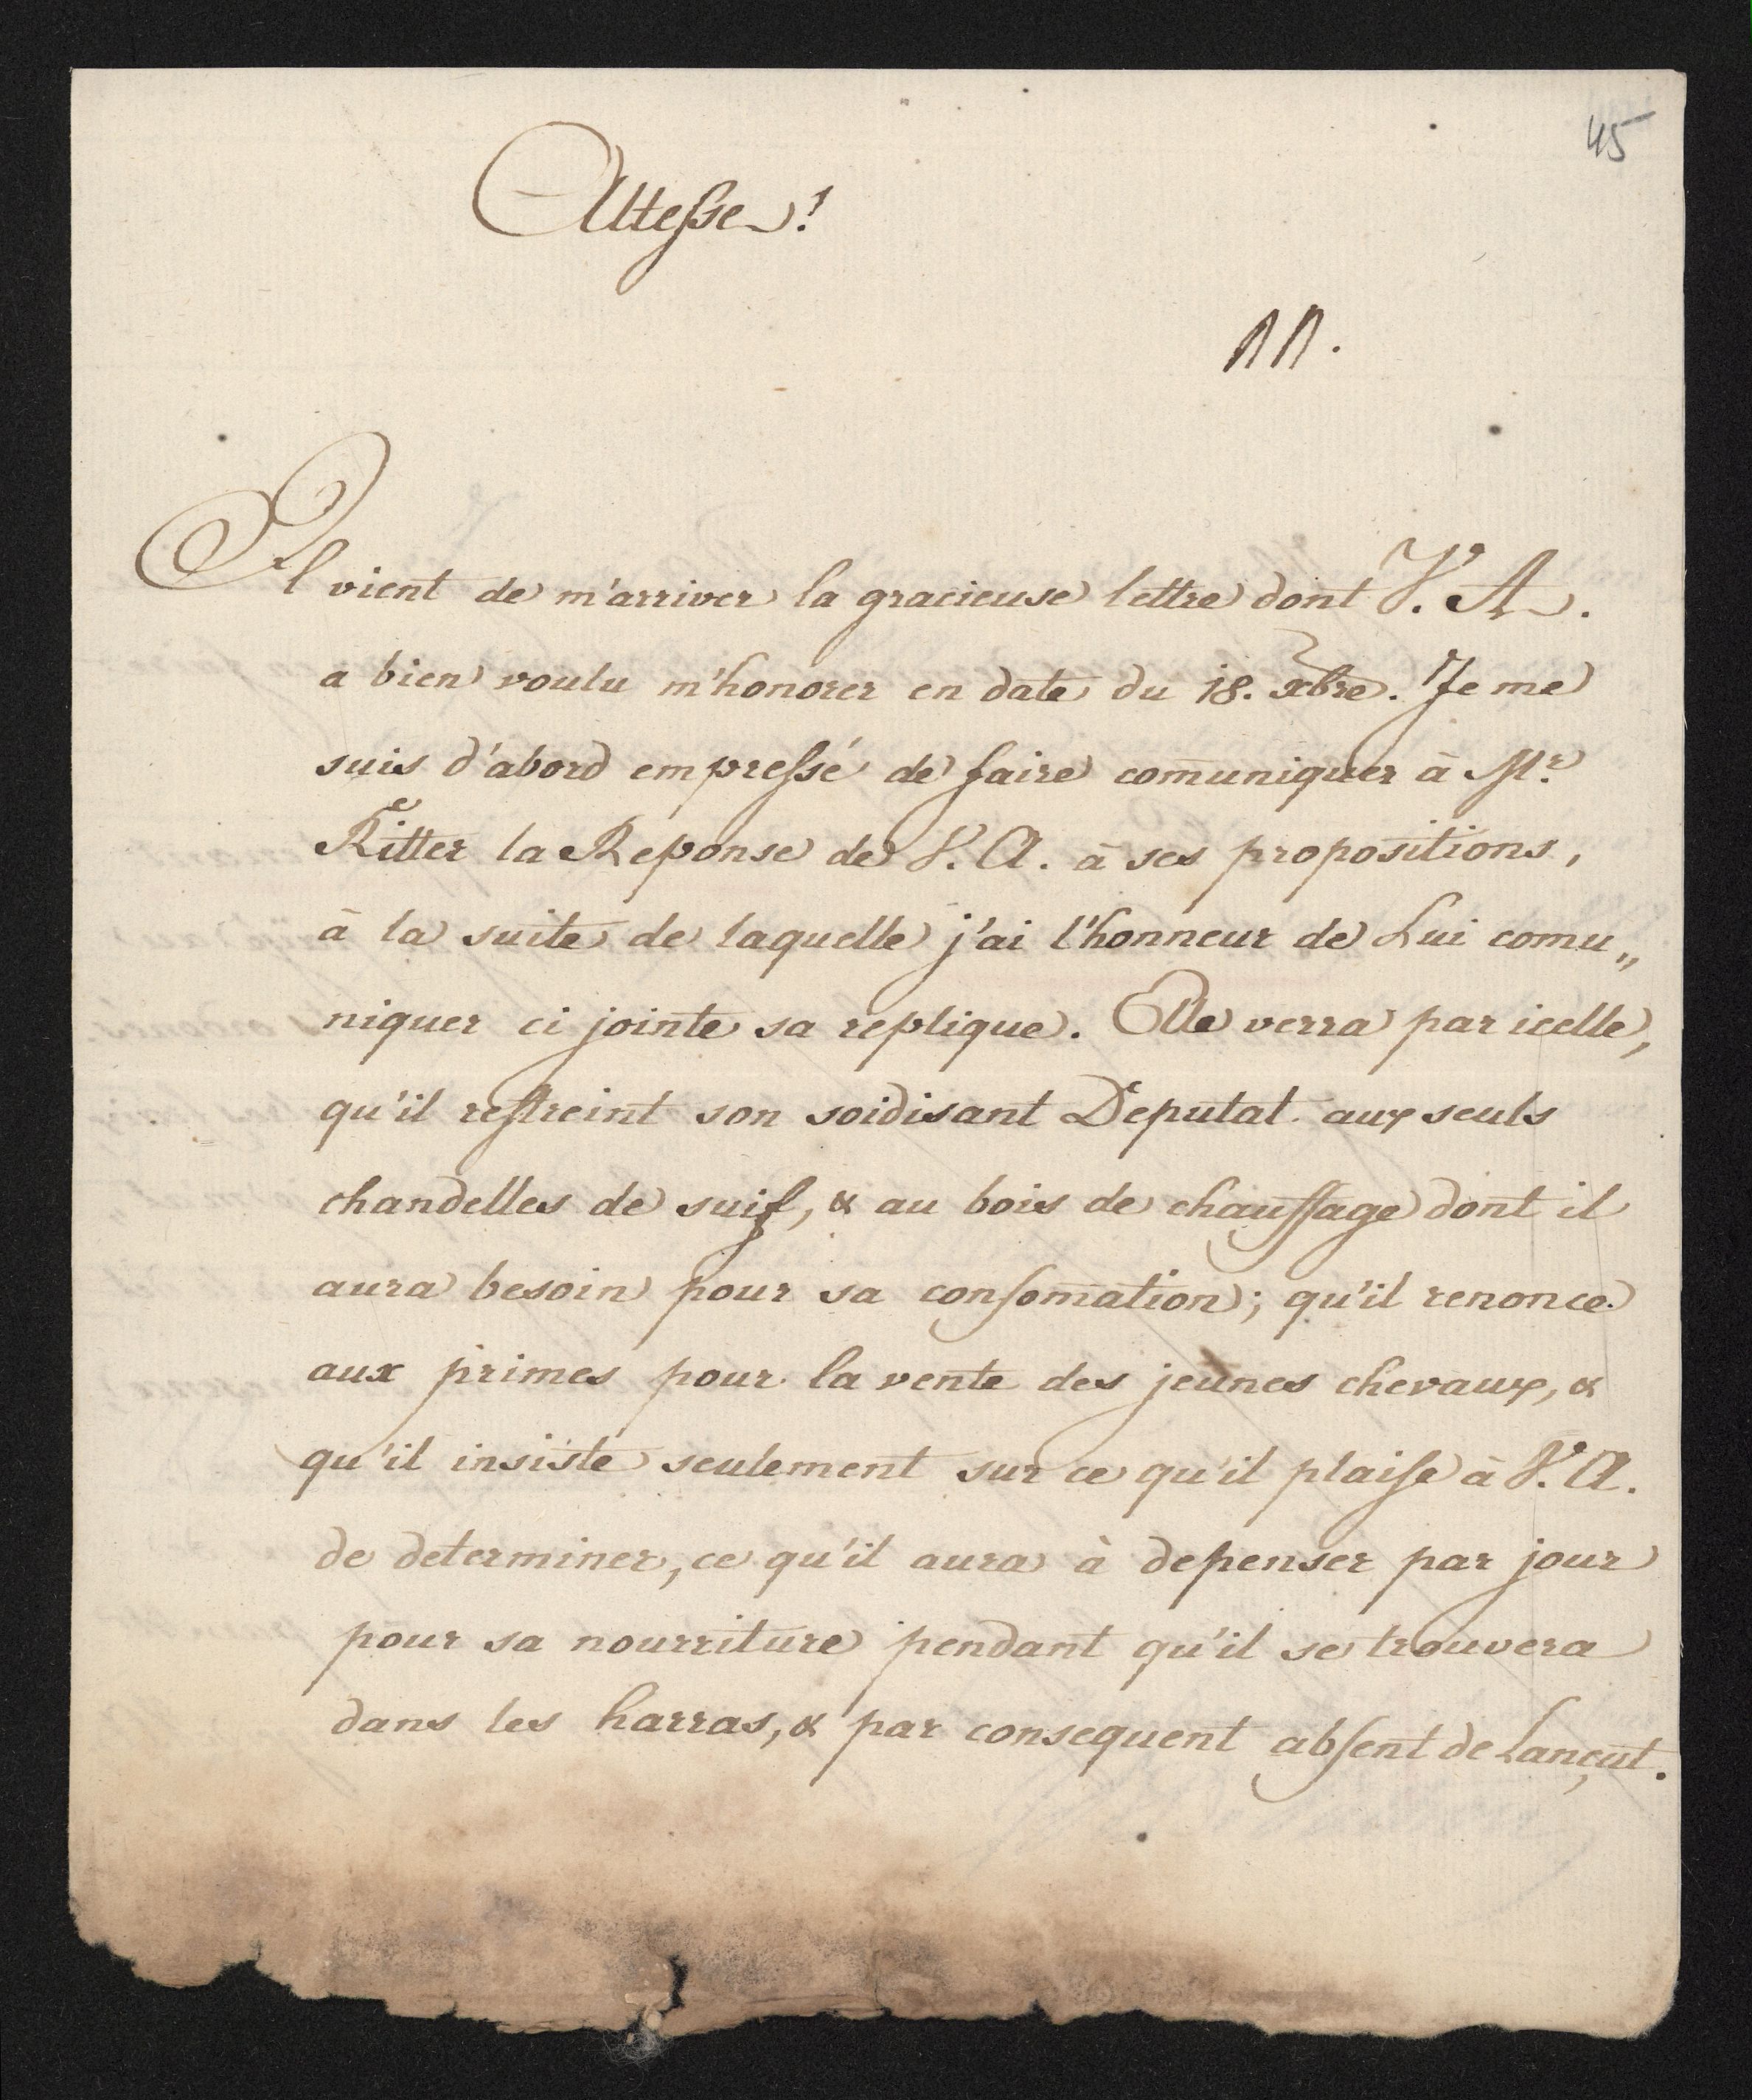 45
Altesse!
11.
Il vient de m'arriver la gracieuse lettre dont V. A.
a bien voulu m'honorer en date du 18. xbre. Je me
suis d'abord empressé de faire com̄uniquer à Mr.
Ritter la Reponse de V. A. à ses propositions,
à la suite de laquelle j'ai l'honneur de Lui comu„
niquer ci jointe sa replique. Elle verra par icelle,
qu'il restreint son soidisant Deputat aux seuls
chandelles de suif, & au bois de chauffage dont il
aura besoin pour sa consom̄ation; qu'il renonce
aux primes pour la vente des jeunes chevaux, &
qu'il insiste seulement sur ce qu'il plaise à V. A.
de determiner, ce qu'il aura à depenser par jour
pour sa nourriture pendant qu'il se trouvera
dans les harras, & par consequent absent de Lançut.